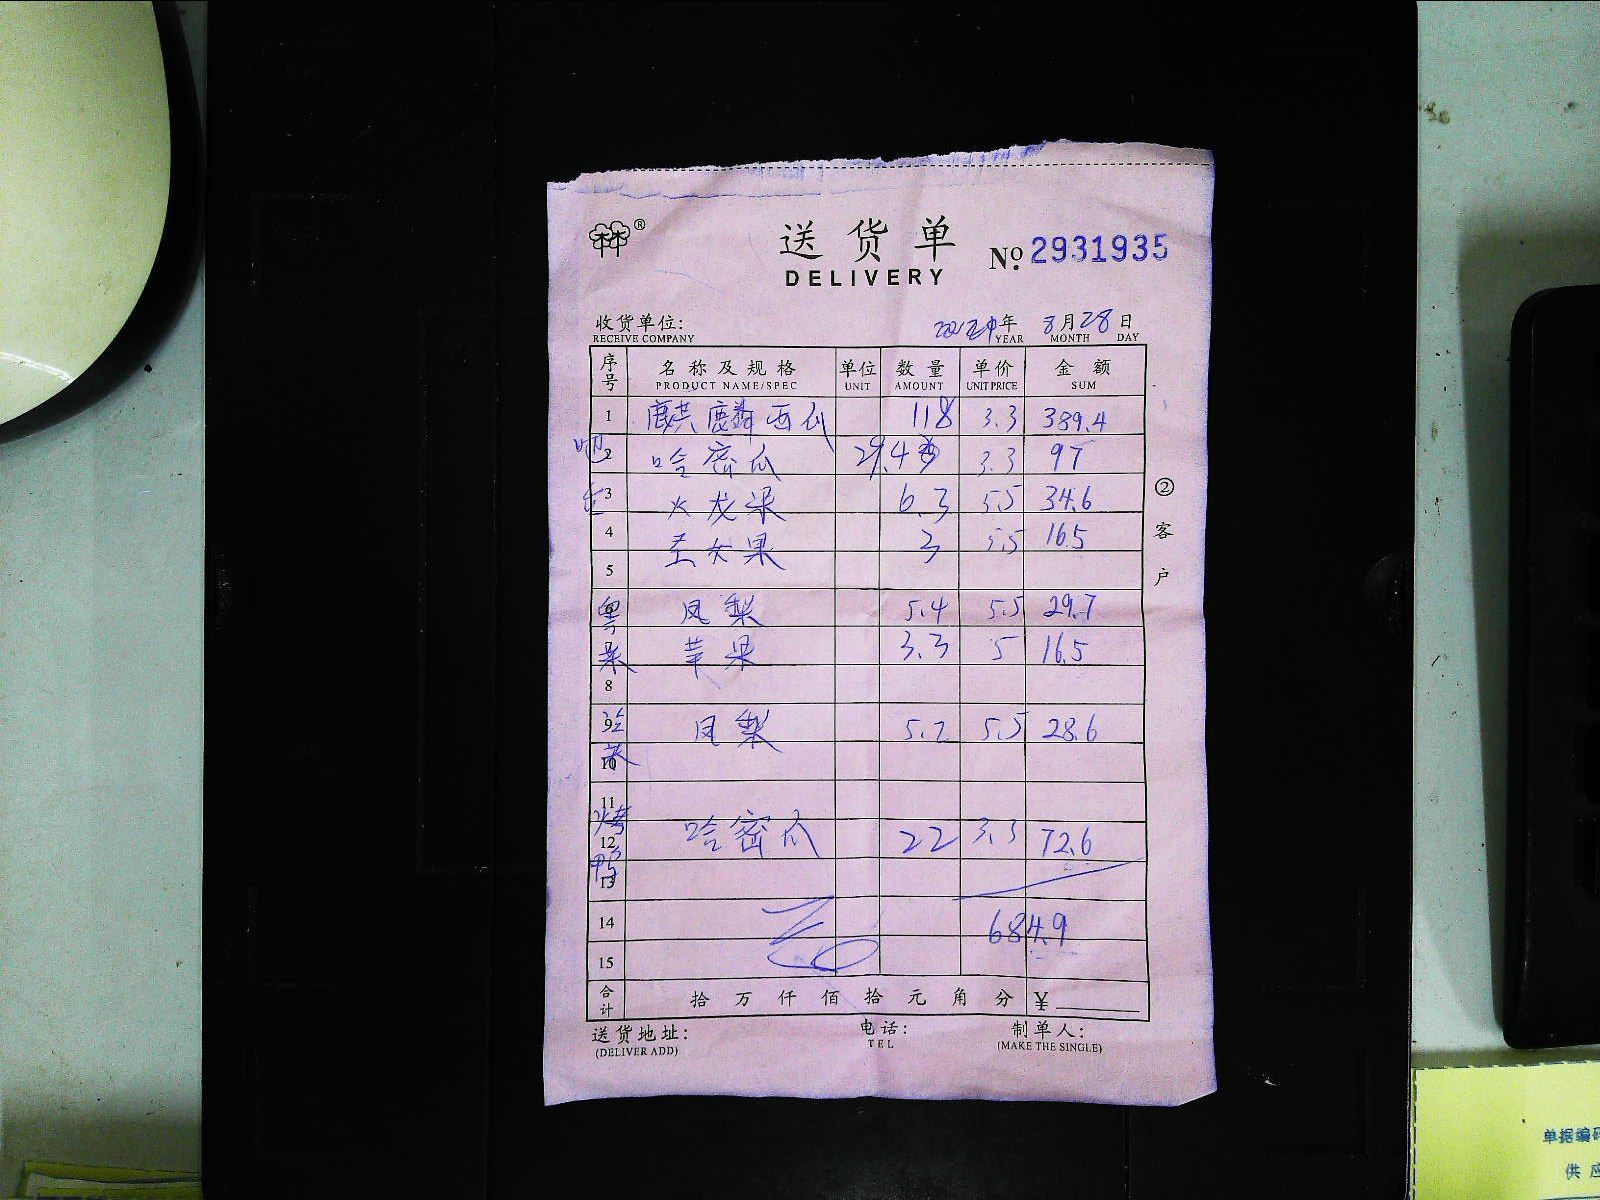 送货单
DELIVERY
No. 2931935
收货单位: 2024年 8月28日
RECEIVE COMPANY YEAR MONTH DAY
序号 名称及规格 单位 数量 单价 金额
PRODUCT NAME/SPEC UNIT AMOUNT UNIT PRICE SUM
1 麒麟西瓜 118 3.3 389.4
2 哈密瓜 29.4 3.3 97
3 火龙果 6.3 5.5 34.6
4 圣女果 3 5.5 16.5
5
粤菜
凤梨 5.4 5.5 29.7
苹果 3.3 5 16.5
8
9 凤梨 5.2 5.5 28.6
10
11
烤鸭
12 哈密瓜 22 3.3 72.6
13
14 684.9
15
合计 拾万仟佰拾元角分 ¥
送货地址: 电话: 制单人:
(DELIVER ADD) TEL (MAKE THE SINGLE)
②客户
单据编
供应